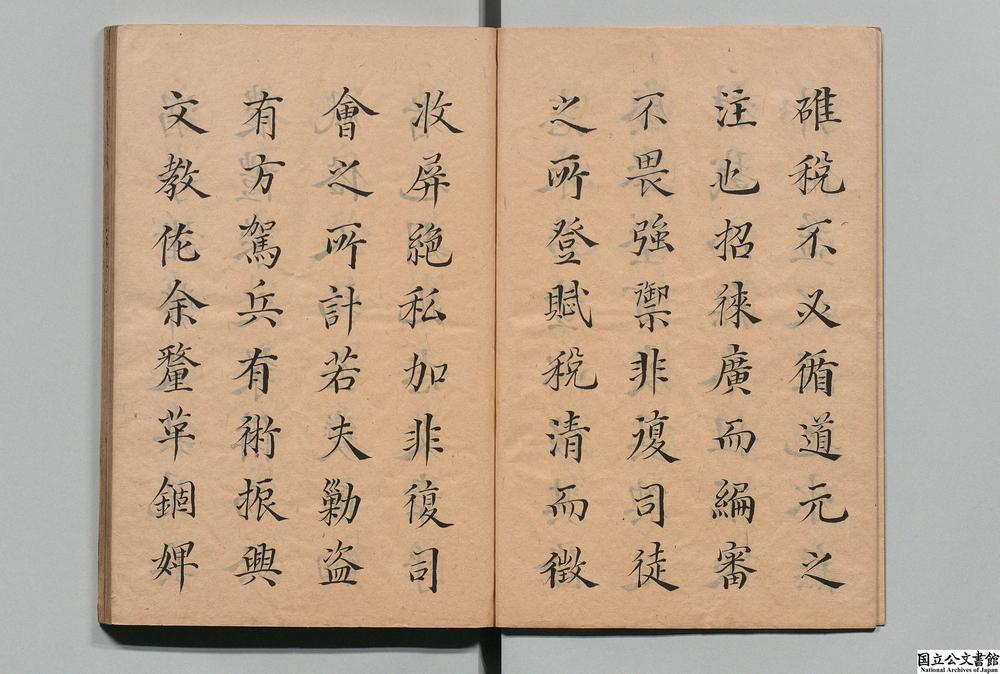 碓稅不必循道元之
注也招徠廣而編審
不畏強禦非復司徒
之所登賦稅清而徵
收屏絕私加非復司
會之所計若夫勦盜
有方駕兵有術振興
文教佐余釐革錮婢
国立公文書館
National Archives of Japan